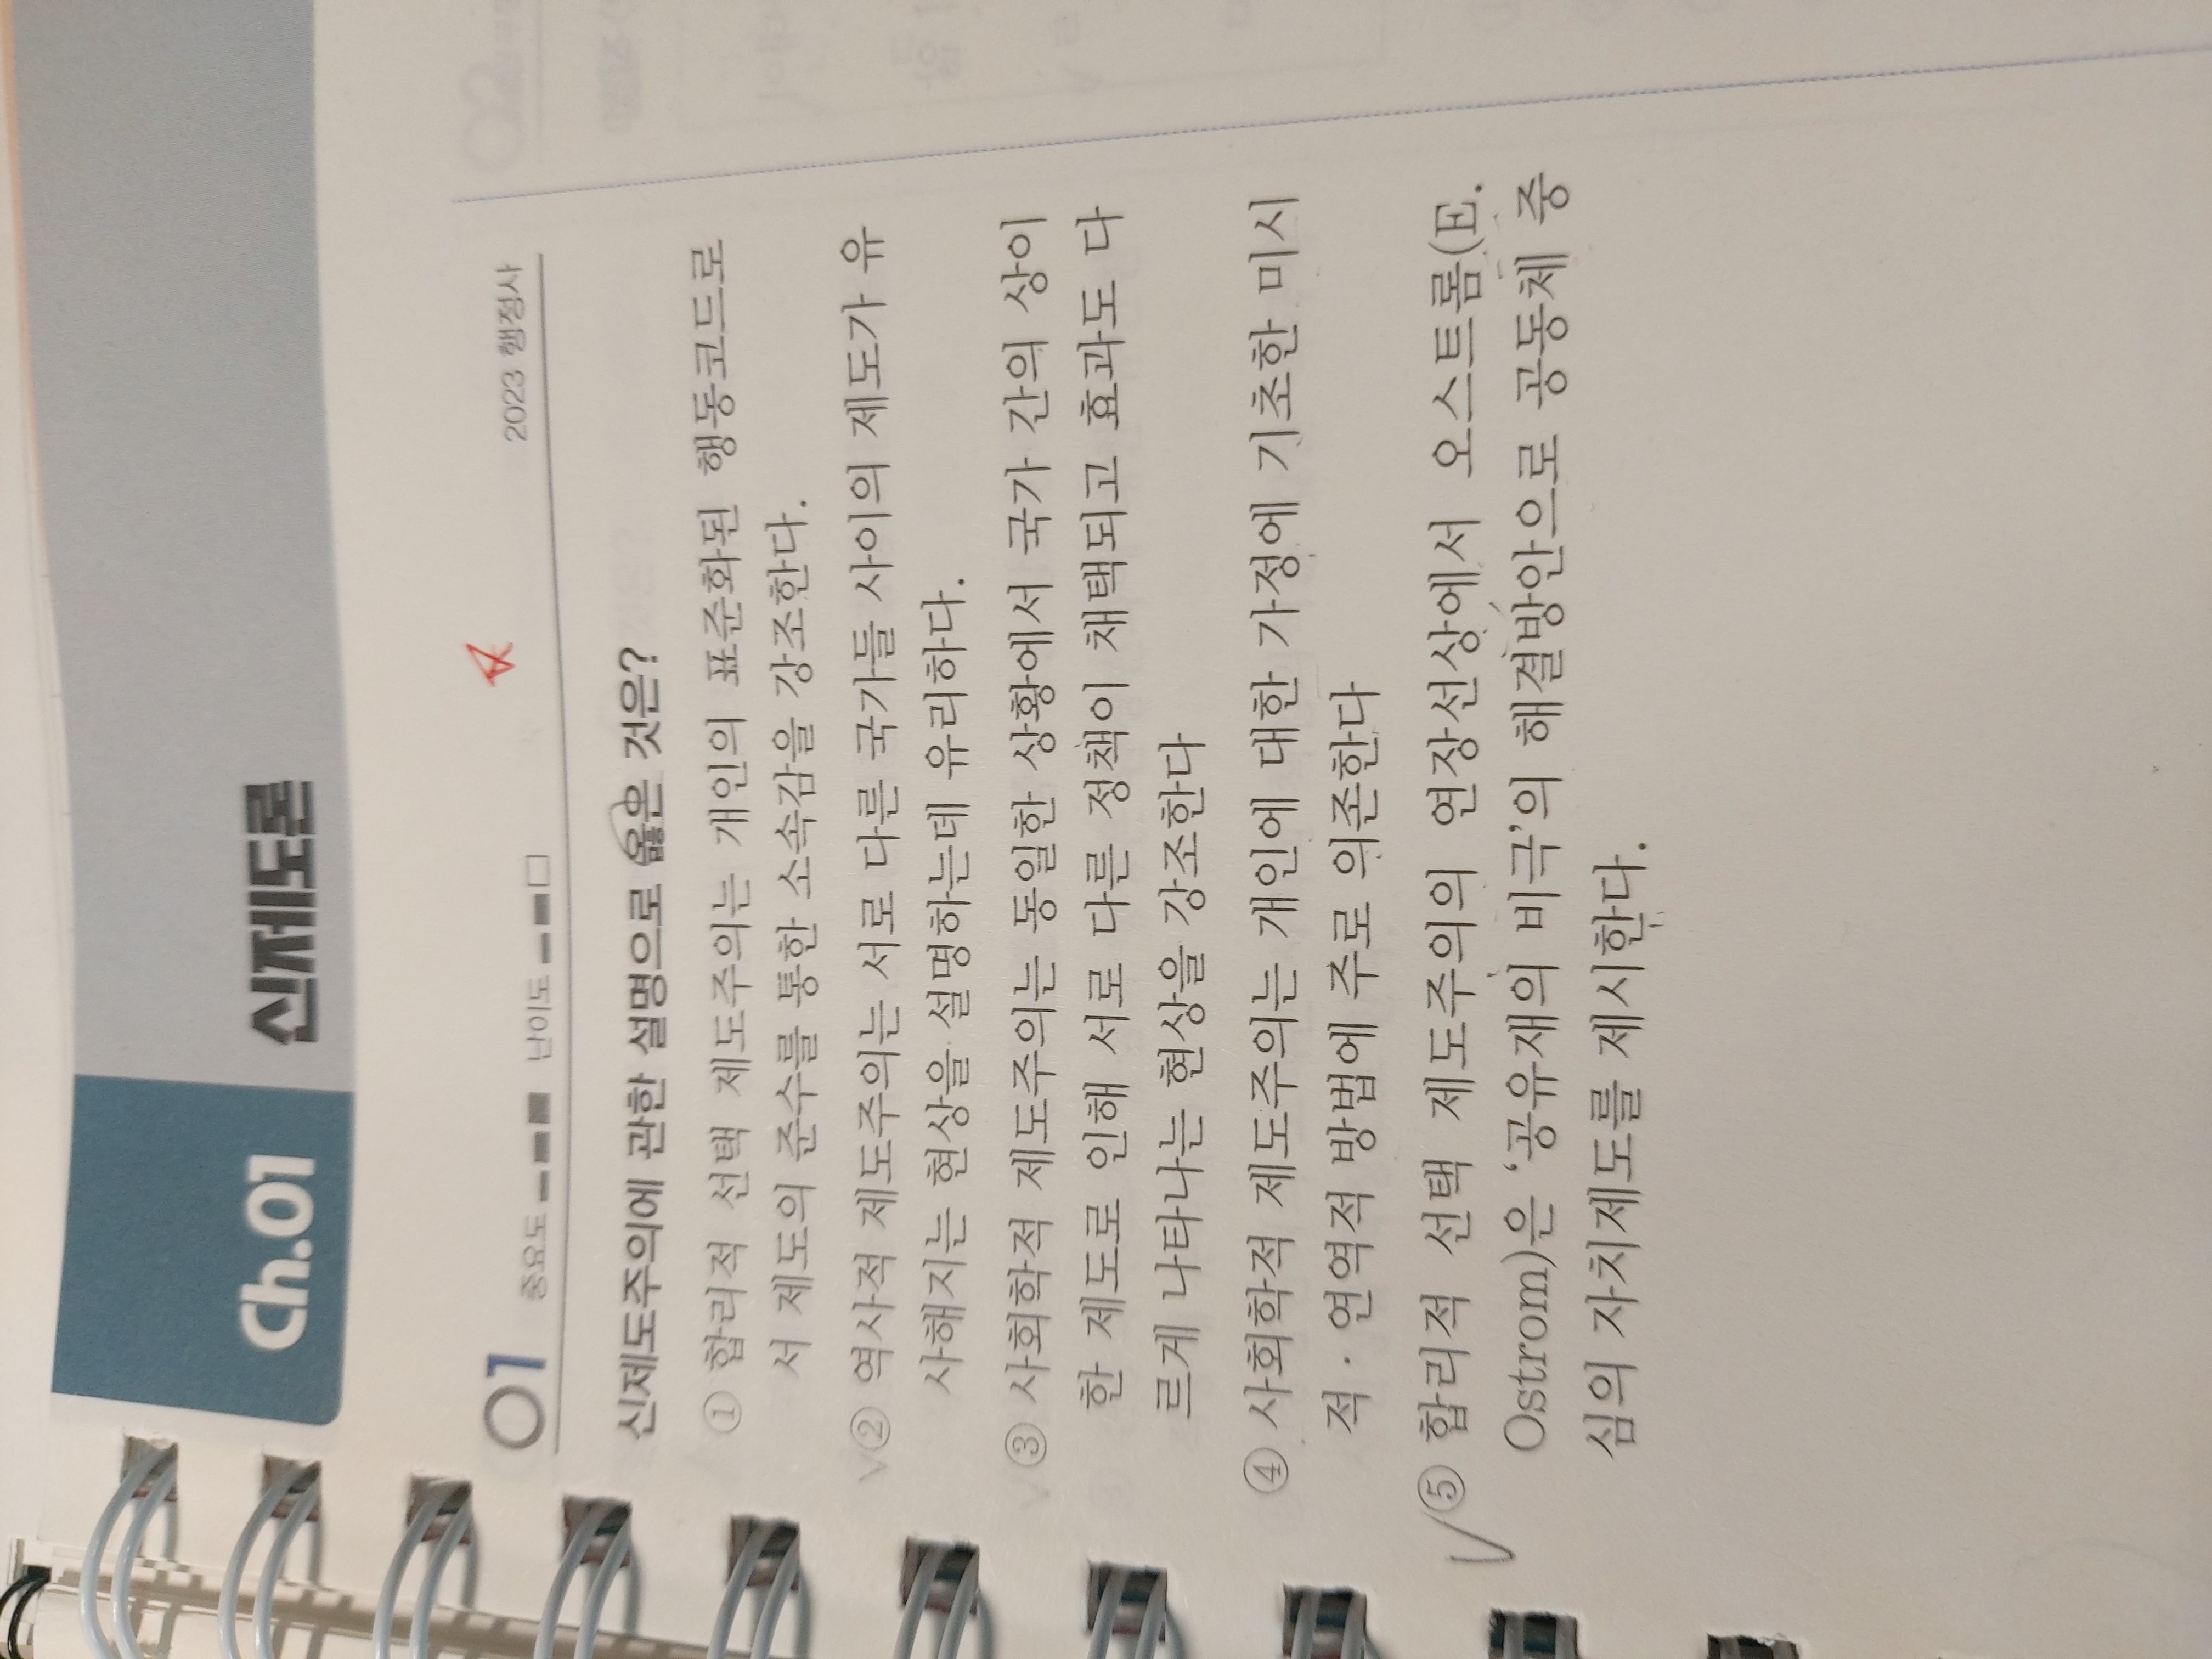 Ch.01 신제도론
01 중요도 난이도 2023 행정사
신제도주의에 관한 설명으로 옳은 것은?
① 합리적 선택 제도주의는 개인의 표준화된 행동코드로
서 제도의 준수를 통한 소속감을 강조한다.
② 역사적 제도주의는 서로 다른 국가들 사이의 제도가 유
사해지는 현상을 설명하는데 유리하다.
③ 사회학적 제도주의는 동일한 상황에서 국가 간의 상이
한 제도로 인해 서로 다른 정책이 채택되고 효과도 다
르게 나타나는 현상을 강조한다
④ 사회학적 제도주의는 개인에 대한 가정에 기초한 미시
적·연역적 방법에 주로 의존한다
⑤ 합리적 선택 제도주의의 연장선상에서 오스트롬(E.
Ostrom)은 ‘공유재의 비극’의 해결방안으로 공동체 중
심의 자치제도를 제시한다.